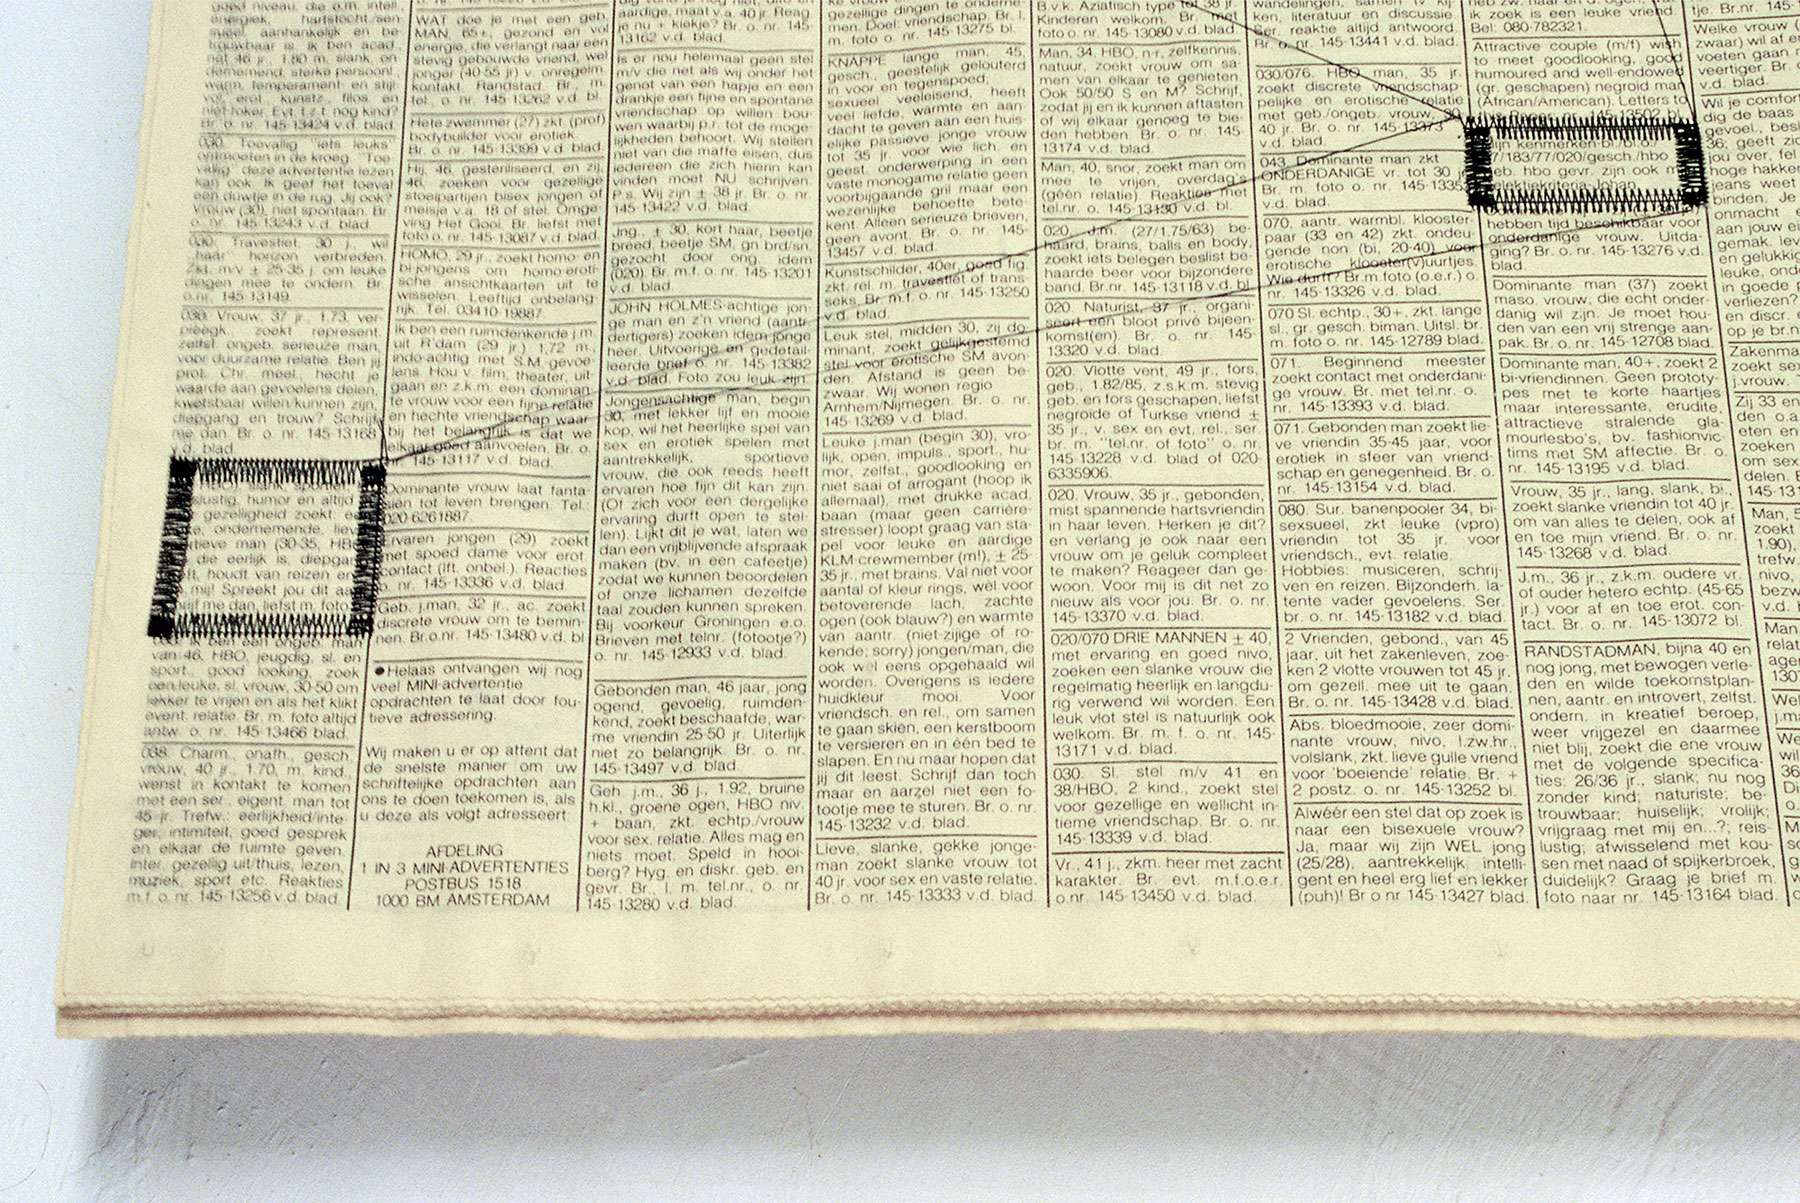 goed niveau, die o.m. intell.
energiek, hartstocht./sen
trouwbaar is. Ik ben acad.,
warm, temperament- en stijl
Br. o. nr. 145-13424 v.d. blad.
030. Toevallig "iets leuks"
ontmoeten in de kroeg. "Toe-
vallig" deze advertentie lezen
kan ook. Ik geef het toeval
een duwtje in de rug. Jij ook?
Vrouw (30), niet spontaan. Br.
o. nr. 145-13243 v.d. blad.
030. Travestiet, 30 j., wil
'haar' horizon verbreden.
Zkt. m/v ± 25-35 j. om leuke
dingen mee te ondern. Br.
o.nr. 145-13149.
zelfst. ongeb. serieuze man,
voor duurzame relatie. Ben jij
prot. Chr. meel., hecht je
waarde aan gevoelens delen,
kwetsbaar willen/kunnen zijn,
diepgang en trouw? Schrijf
me dan. Br. o. nr. 145-13168
v.d. blad.
humor en altijd
gezelligheid zoekt
ondernemende,
man (30-35, HB
die eerlijk is,
houdt van reizen
mij! Spreekt jou dit
me dan, liefst m. foto.
ben een ongeb. man
van 46, HBO, jeugdig, sl. en
sport., good looking, zoek
een leuke, sl. vrouw, 30-50 om
lekker te vrijen en als het klikt
event. relatie. Br. m. foto altijd
antw. o. nr. 145-13466 blad.
038. Charm., onafh., gesch.
vrouw, 40 jr., 1.70, m. kind.,
wenst in kontakt te komen
met een ser., eigent. man tot
45 jr. Trefw.: eerlijkheid/inte-
ger, intimiteit, goed gesprek
en elkaar de ruimte geven.
Inter. gezellig uit/thuis, lezen,
muziek, sport etc. Reakties
m.f. o. nr. 145-13256 v.d. blad.
WAT doe je met een geb.
MAN, 65+, gezond en vol
energie, die verlangt naar een
stevig gebouwde vriend, wel
jonger (40-55 jr) v. onregelm.
kontakt. Randstad. Br., m.
tel., o. nr. 145-13262 v.d. bl.
Hete zwemmer (27) zkt. (prof)
bodybuilder voor erotiek.
Br. o. nr. 145-13399 v.d. blad.
Hij, 46, gesteriliseerd, en zij,
46, zoeken voor gezellige
stoeipartijen bisex jongen of
meisje v.a. 18 of stel. Omge-
ving Het Gooi. Br. liefst met
foto o. nr. 145-13087 v.d. blad.
HOMO, 29 jr., zoekt homo- en
bi-jongens om homo-eroti-
sche ansichtkaarten uit te
wisselen. Leeftijd onbelang-
rijk. Tel. 03410-19887.
Ik ben een ruimdenkende j.m.
uit R'dam (29 jr.) 1,72 m.,
indo-achtig met S.M. gevoe-
lens. Hou v. film, theater, uit-
gaan en z.k.m. een dominan-
te vrouw voor een fijne relatie
en hechte vriendschap waar-
bij het belangrijk is dat we
elkaar goed aanvoelen. Br. o.
nr. 145-13117 v.d. blad.
Dominante vrouw laat fanta-
sien tot leven brengen. Tel.:
020-6261887.
Ervaren jongen (29) zoekt
met spoed dame voor erot.
contact (lft. onbel.). Reacties
o. nr. 145-13336 v.d. blad.
Geb. j.man, 32 jr., ac. zoekt
discrete vrouw om te bemin-
nen. Br.o.nr. 145-13480 v.d. bl
●Helaas ontvangen wij nog
veel MINI-advertentie
opdrachten te laat door fou-
tieve adressering.
Wij maken u er op attent dat
de snelste manier om uw
schriftelijke opdrachten aan
ons te doen toekomen is, als
u deze als volgt adresseert:
AFDELING
1 IN 3 MINI-ADVERTENTIES
POSTBUS 1518
1000 BM AMSTERDAM
aardige, mat v.a. 40 jr. Reag.
je nu + kiekje? Br. o. nr. 145-
13162 v.d. blad.
Is er nou helemaal geen stel
m/v die net als wij onder het
genot van een hapje en een
drankje een fijne en spontane
vriendschap op willen bou-
wen waarbij p.r. tot de moge-
lijkheden behoort. Wij stellen
niet van die maffe eisen, dus
iedereen die zich hierin kan
vinden moet NU schrijven.
P.s. Wij zijn ± 38 jr. Br. o. nr.
145-13422 v.d. blad.
Jng., ± 30, kort haar, beetje
breed, beetje SM, gn brd/sn.
gezocht door ong. idem
(020). Br. m.f. o. nr. 145-13201
v.d. blad.
JOHN HOLMES-achtige jon-
ge man en z'n vriend (aantr.
dertigers) zoeken idem jonge
heer. Uitvoerige en gedetail-
leerde brief o. nr. 145-13382
v.d. blad. Foto zou leuk zijn.
Jongensachtige man, begin
30, met lekker lijf en mooie
kop, wil het heerlijke spel van
sex en erotiek spelen met
aantrekkelijk, sportieve
vrouw, die ook reeds heeft
ervaren hoe fijn dit kan zijn.
(Of zich voor een dergelijke
ervaring durft open te stel-
len). Lijkt dit je wat, laten we
dan een vrijblijvende afspraak
maken (bv. in een cafeetje)
zodat we kunnen beoordelen
of onze lichamen dezelfde
taal zouden kunnen spreken.
Bij voorkeur Groningen e.o.
Brieven met telnr. (fotootje?)
o. nr. 145-12933 v.d. blad.
Gebonden man, 46 jaar, jong
ogend, gevoelig, ruimden-
kend, zoekt beschaafde, war-
me vriendin 25-50 jr. Uiterlijk
niet zo belangrijk. Br. o. nr.
145-13497 v.d. blad.
Geh. j.m., 36 j., 1.92, bruine
h.kl., groene ogen, HBO niv.
+ baan, zkt. echtp./vrouw
voor sex. relatie. Alles mag en
niets moet. Speld in hooi-
berg? Hyg. en diskr. geb. en
gevr. Br., l. m. tel.nr., o. nr.
145-13280 v.d. blad.
gezellige dingen te onderne-
men. Doel: vriendschap. Br. l.
m. foto o. nr. 145-13275 bl.
KNAPPE lange man, 45,
gesch., geestelijk gelouterd
in voor en tegenspoed;
sexueel veeleisend, heeft
veel liefde, warmte en aan-
dacht te geven aan een huis-
elijke passieve jonge vrouw
tot 35 jr. voor wie lich. en
geest. onderwerping in een
vaste monogame relatie geen
voorbijgaande gril maar een
wezenlijke behoefte bete-
kent. Alleen serieuze brieven,
geen avont. Br. o. nr. 145-
13457 v.d. blad.
Kunstschilder, 40er, goed fig.
zkt. rel. m. travestiet of trans-
seks. Br. m.f. o. nr. 145-13250
v.d. blad.
Leuk stel, midden 30, zij do-
minant, zoekt gelijkgestemd
stel voor erotische SM avon-
den. Afstand is geen be-
zwaar. Wij wonen regio
Arnhem/Nijmegen. Br. o. nr.
145-13269 v.d. blad.
Leuke j.man (begin 30), vro-
lijk, open, impuls., sport., hu-
mor, zelfst., goodlooking en
niet saai of arrogant (hoop ik
allemaal), met drukke acad.
baan (maar geen carrière-
stresser) loopt graag van sta-
pel voor leuke en aardige
KLM-crewmember (m!), ± 25-
35 jr., met brains. Val niet voor
aantal of kleur rings, wèl voor
betoverende lach, zachte
ogen (ook blauw?) en warmte
van aantr. (niet-zijige of ro-
kende; sorry) jongen/man, die
ook wel eens opgehaald wil
worden. Overigens is iedere
huidkleur mooi. Voor
vriendsch. en rel., om samen
te gaan skiën, een kerstboom
te versieren en in één bed te
slapen. En nu maar hopen dat
jij dit leest. Schrijf dan toch
maar en aarzel niet een fo-
tootje mee te sturen. Br. o. nr.
145-13232 v.d. blad.
Lieve, slanke, gekke jonge-
man zoekt slanke vrouw tot
40 jr. voor sex en vaste relatie.
Br. o. nr. 145-13333 v.d. blad.
B.v.k. Aziatisch type tot 38 jr.
Kinderen welkom. Br. met
foto o. nr. 145-13080 v.d. blad.
Man, 34, HBO, n-r, zelfkennis,
natuur, zoekt vrouw om sa-
men van elkaar te genieten.
Ook 50/50 S en M? Schrijf,
zodat jij en ik kunnen aftasten
of wij elkaar genoeg te bie-
den hebben. Br. o. nr. 145-
13174 v.d. blad.
Man, 40, snor, zoekt man om
mee te vrijen, overdag's
(géén relatie). Reakties met
tel.nr. o. nr. 145-13130 v.d. bl.
020, J.m. (27/1.75/63) be-
haard, brains, balls en body,
zoekt iets belegen beslist be-
haarde beer voor bijzondere
band. Br.nr. 145-13118 v.d. bl.
020. Naturist, 37 jr., organi-
seert een bloot privé bijeen-
komst(en). Br. o. nr. 145-
13320 v.d. blad.
020. Vlotte vent, 49 jr., fors,
geb., 1.82/85, z.s.k.m. stevig
geb. en fors geschapen, liefst
negroide of Turkse vriend ±
35 jr., v. sex en evt. rel., ser.
br. m. "tel.nr. of foto" o. nr.
145-13228 v.d. blad of 020-
6335906.
020. Vrouw, 35 jr., gebonden,
mist spannende hartsvriendin
in haar leven. Herken je dit?
en verlang je ook naar een
vrouw om je geluk compleet
te maken? Reageer dan ge-
woon. Voor mij is dit net zo
nieuw als voor jou. Br. o. nr.
145-13370 v.d. blad.
020/070 DRIE MANNEN ± 40,
met ervaring en goed nivo,
zoeken een slanke vrouw die
regelmatig heerlijk en langdu-
rig verwend wil worden. Een
leuk vlot stel is natuurlijk ook
welkom. Br. m. f. o. nr. 145-
13171 v.d. blad.
030. Sl. stel m/v 41 en
38/HBO, 2 kind., zoekt stel
voor gezellige en wellicht in-
tieme vriendschap. Br. o. nr.
145-13339 v.d. blad.
Vr., 41 j., zkm. heer met zacht
karakter. Br. evt. m.f.o.e.r.
o.nr. 145-13450 v.d. blad.
wandelingen, samen tv kij-
ken, literatuur en discussie.
Ser. reaktie altijd antwoord.
Br. o. nr. 145-13441 v.d. blad.
030/076. HBO man, 35 jr.
zoekt discrete vriendschap-
pelijke en erotische relatie
met geb./ongeb. vrouw, 30-
40 jr. Br. o. nr. 145-13373
043. Dominante man zkt
ONDERDANIGE vr. tot 30 jr.
Br. m. foto o. nr. 145-1335
v.d. blad.
070. aantr. warmbl. klooster-
paar (33 en 42) zkt. ondeu-
gende non (bi, 20-40) voor
erotische klooster(v)uurtjes.
Wie durft? Br m.foto (o.e.r.) o.
nr. 145-13326 v.d. blad.
070 Sl. echtp., 30+, zkt. lange
sl., gr. gesch. biman. Uitsl. br.
m. foto o. nr. 145-12789 blad.
071. Beginnend meester
zoekt contact met onderdani-
ge vrouw. Br. met tel.nr. o.
nr. 145-13393 v.d. blad.
071. Gebonden man zoekt lie-
ve vriendin 35-45 jaar, voor
erotiek in sfeer van vriend-
schap en genegenheid. Br. o.
nr. 145-13154 v.d. blad.
080. Sur. banenpooler 34, bi-
sexueel, zkt leuke (vpro)
vriendin tot 35 jr. voor
vriendsch., evt. relatie.
Hobbies: musiceren, schrij-
ven en reizen. Bijzonderh. la-
tente vader gevoelens. Ser.
br. o. nr. 145-13182 v.d. blad.
2 Vrienden, gebond., van 45
jaar, uit het zakenleven, zoe-
ken 2 vlotte vrouwen tot 45 jr.
om gezell. mee uit te gaan.
Br. o. nr. 145-13428 v.d. blad.
Abs. bloedmooie, zeer domi-
nante vrouw, nivo, l.zw.hr.,
volslank, zkt. lieve gulle vriend
voor 'boeiende' relatie. Br. +
2 postz. o. nr. 145-13252 bl.
Alwéér een stel dat op zoek is
naar een bisexuele vrouw?
Ja, maar wij zijn WEL jong
(25/28), aantrekkelijk, intelli-
gent en heel erg lief en lekker
(puh)! Br o nr 145-13427 blad.
ik zoek is een leuke vriend.
Bel: 080-782321.
Attractive couple (m/f) wish
to meet goodlooking, good
humoured and well-endowed
(gr. geschapen) negroid man
(African/American). Letters to
145-13502 bl.
Mijn kenmerken bl./bl.o./
7/183/77/020/gesch./hbo
eb. hbo gevr. zijn ook m
selektiekriteria. Johan.
hebben tijd beschikbaar voor
onderdanige vrouw. Uitda-
ging? Br. o. nr. 145-13276 v.d.
blad.
Dominante man (37) zoekt
maso. vrouw, die echt onder-
danig wil zijn. Je moet hou-
den van een vrij strenge aan-
pak. Br. o. nr. 145-12708 blad.
Dominante man, 40+, zoekt 2
bi-vriendinnen. Geen prototy-
pes met te korte haartjes
maar interessante, erudite,
attractieve stralende gla-
mourlesbo's, bv. fashionvic-
tims met SM affectie. Br. o.
nr. 145-13195 v.d. blad.
Vrouw, 35 jr., lang, slank, bi.,
zoekt slanke vriendin tot 40 jr.
om van alles te delen, ook af
en toe mijn vriend. Br. o. nr.
145-13268 v.d. blad.
J.m., 36 jr., z.k.m. oudere vr.
of ouder hetero echtp. (45-65
jr.) voor af en toe erot. con-
tact. Br. o. nr. 145-13072 bl.
RANDSTADMAN, bijna 40 en
nog jong, met bewogen verle-
den en wilde toekomstplan-
nen, aantr. en introvert, zelfst.
ondern. in kreatief beroep,
weer vrijgezel en daarmee
niet blij, zoekt die ene vrouw
met de volgende specifica-
ties: 26/36 jr., slank; nu nog
zonder kind; naturiste; be-
trouwbaar; huiselijk; vrolijk;
vrijgraag met mij en...?; reis-
lustig; afwisselend met kou-
sen met naad of spijkerbroek,
duidelijk? Graag je brief m.
foto naar nr. 145-13164 blad.
tje. Br.nr. 145-
Welke vrouw (
zwaar) wil af e
voeten gaan
veertiger. Br. o
Wil je comfor
dig de baas
gevoel., besl
36; geeft zic
jou over, fel
hoge hakke
jeans weet
binden. Je
onmacht e
aan jouw ei
gemak, lev
en gelukkig
leuke, ond
in goede p
verliezen?
en discr. e
op je br.nr
Zakenma
zoekt se
j.vrouw. T
Zij 33 en
den o.a.
eten en
zoeken
om sex
delen. B
145-131
Man, 5
zoekt
1.90),
trefw.
nivo,
bezw
v.d. b
Man
relat
ager
1307
Wel
j.ma
We
wil
36